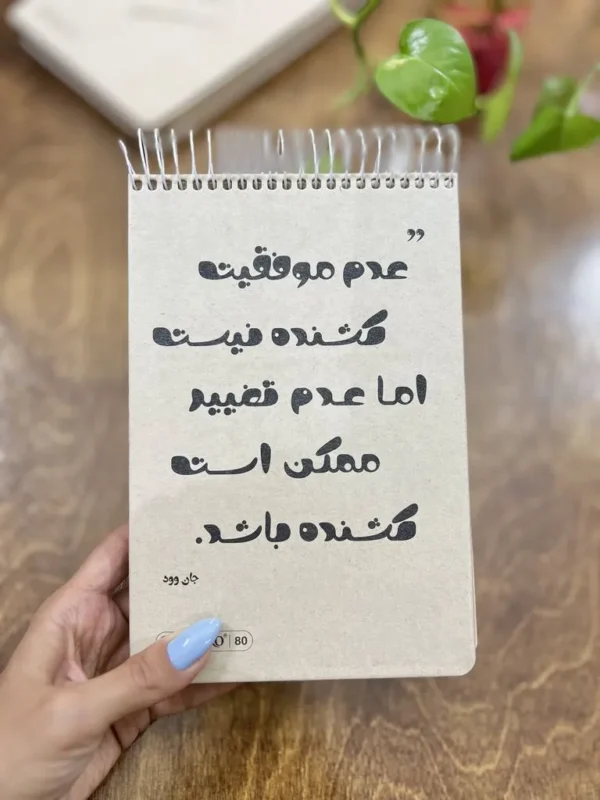 ”
عدم موفقیت
کشنده نیست
اما عدم تغییر
ممکن است
کشنده باشد.
جان وود
80